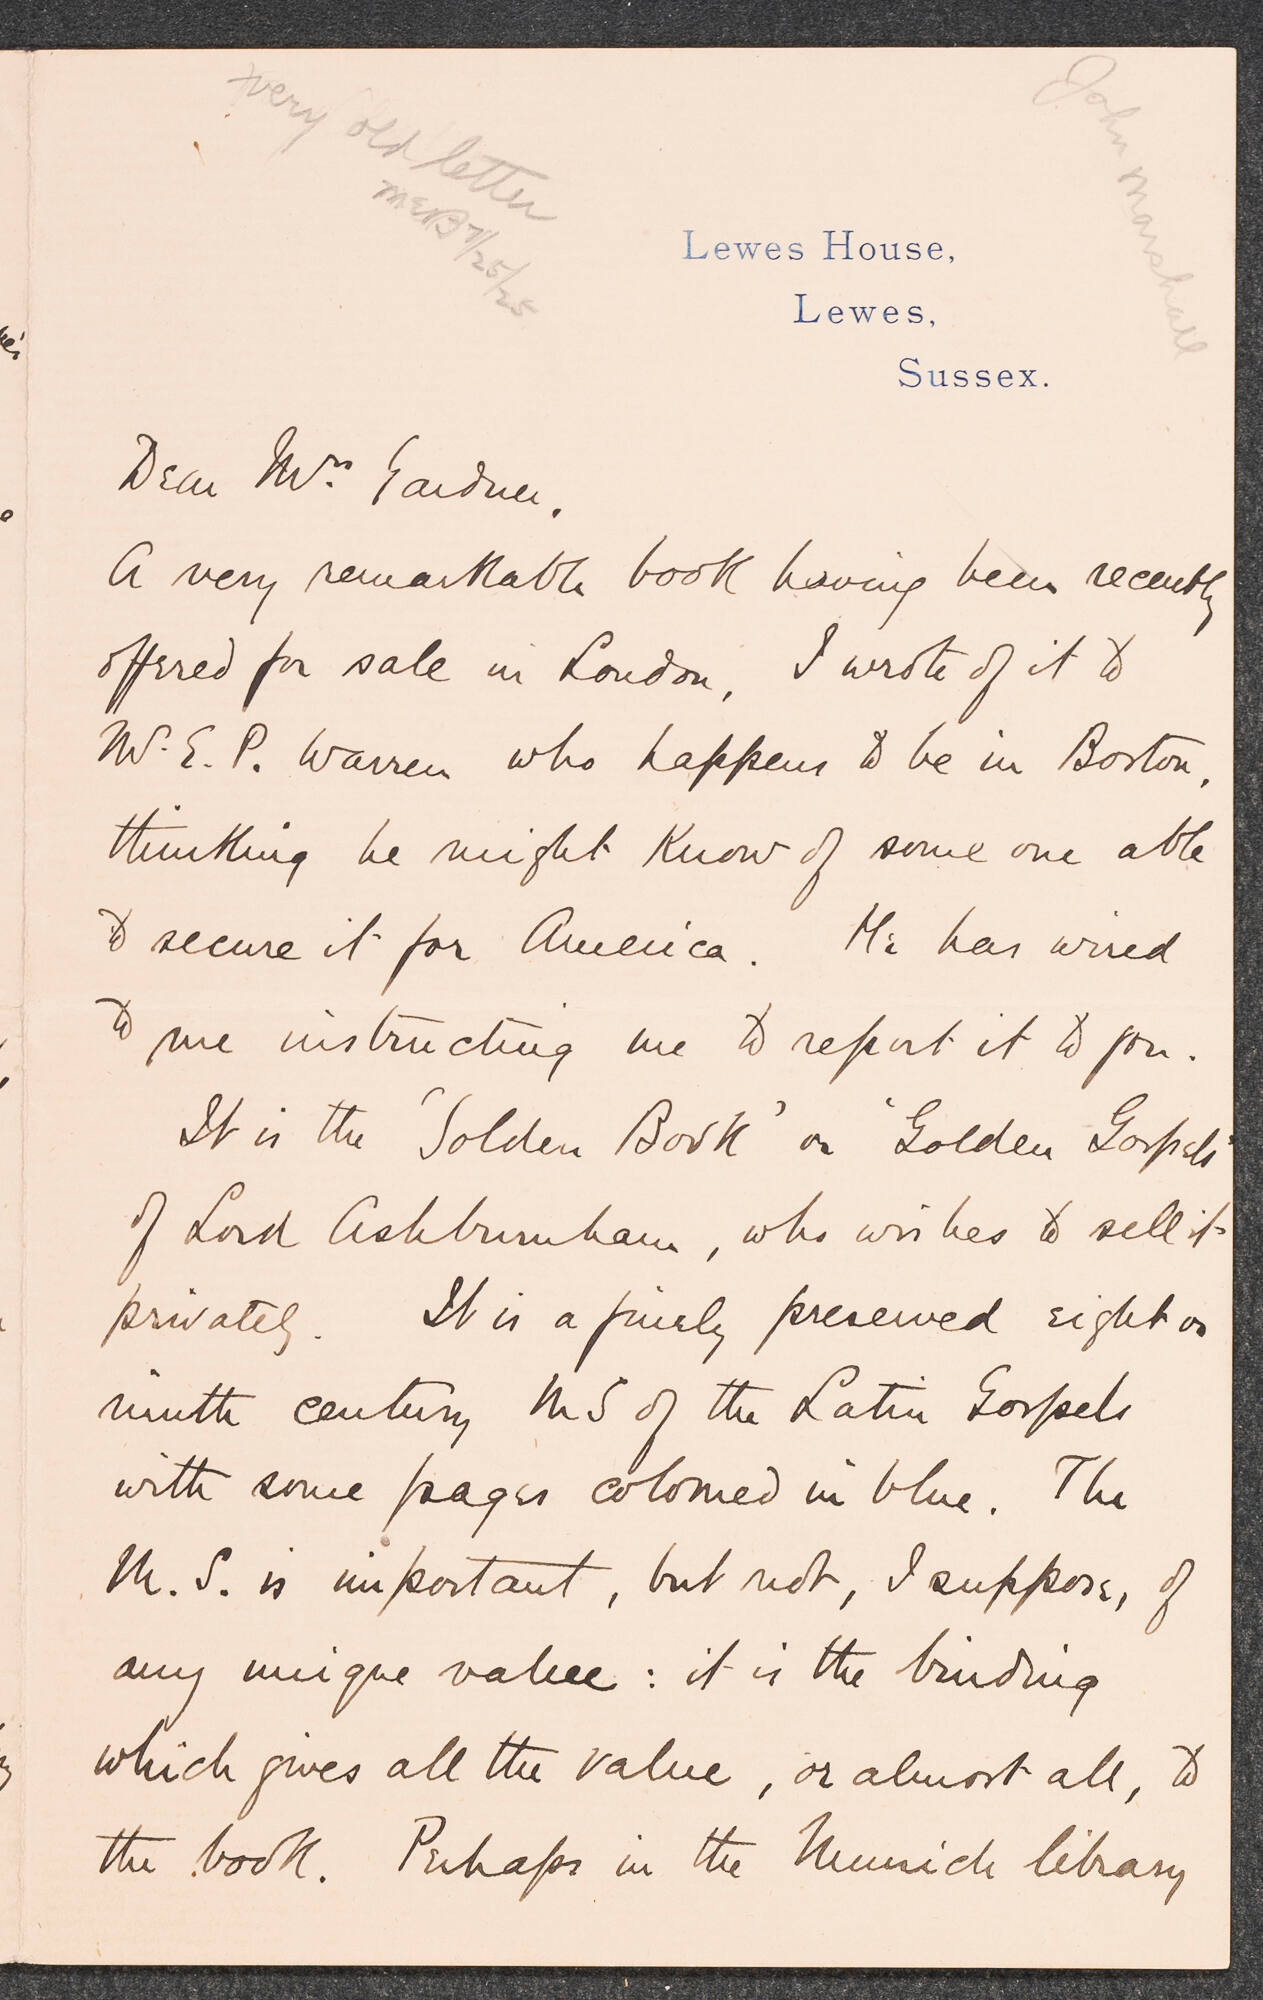 very old letter
McB 7/25/25
John Marshall
Lewes House,
Lewes,
Sussex.
Dear Mrs. Gardner,
A very remarkable book having been recently
offered for sale in London, I wrote of it to
Mr. E. P. Warren who happens to be in Boston,
thinking he might know of some one able
to secure it for America. He has wired
to me instructing me to report it to you.
It is the 'Golden Book' or 'Golden Gospels'
of Lord Ashburnham, who wishes to sell it
privately. It is a finely preserved eight or
ninth century MS of the Latin Gospels
with some pages coloured in blue. The
M.S. is important, but not, I suppose, of
any unique value: it is the binding
which gives all the value, or almost all, to
the book. Perhaps in the Munich library